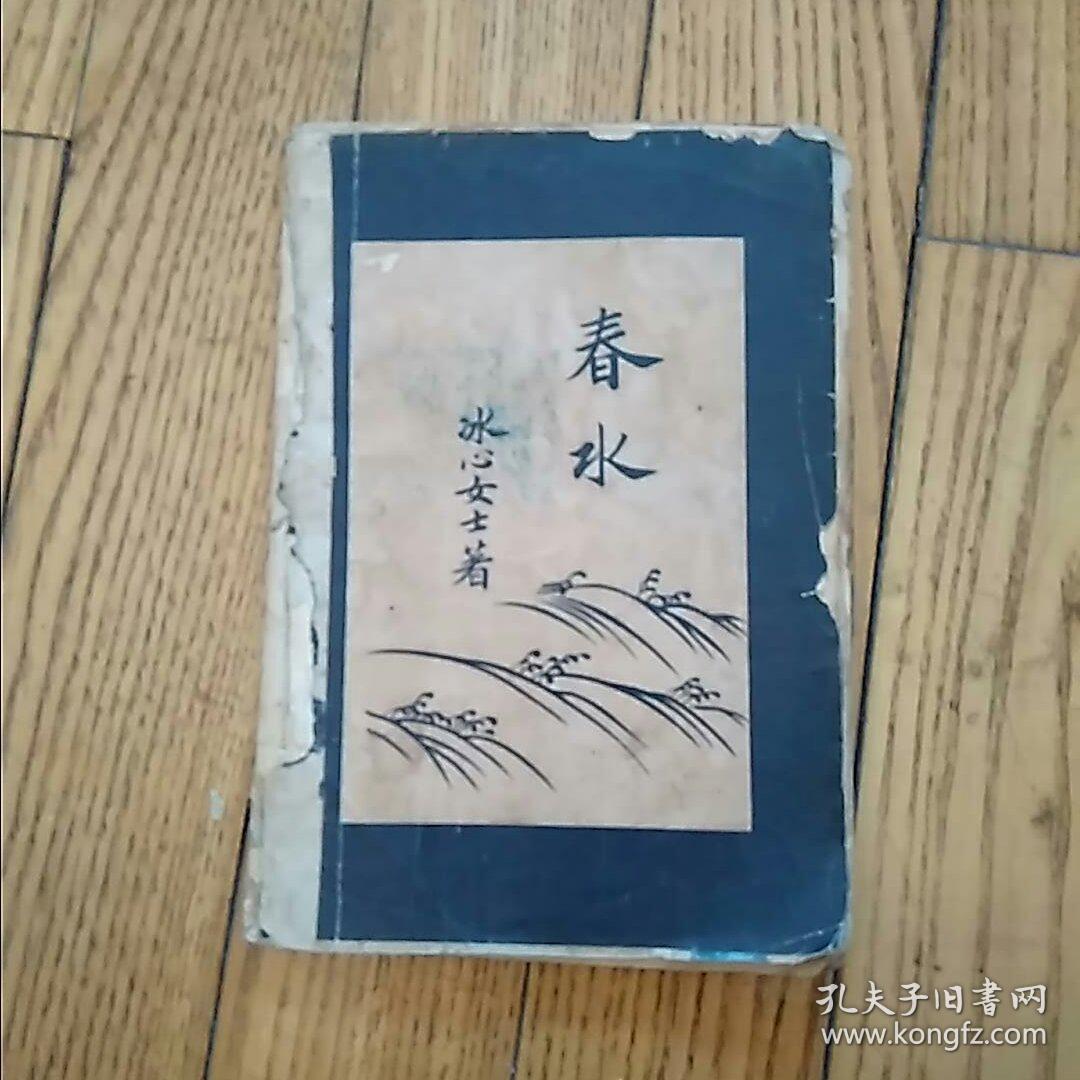 春水
冰心女士著
孔夫子旧書网
www.kongfz.com